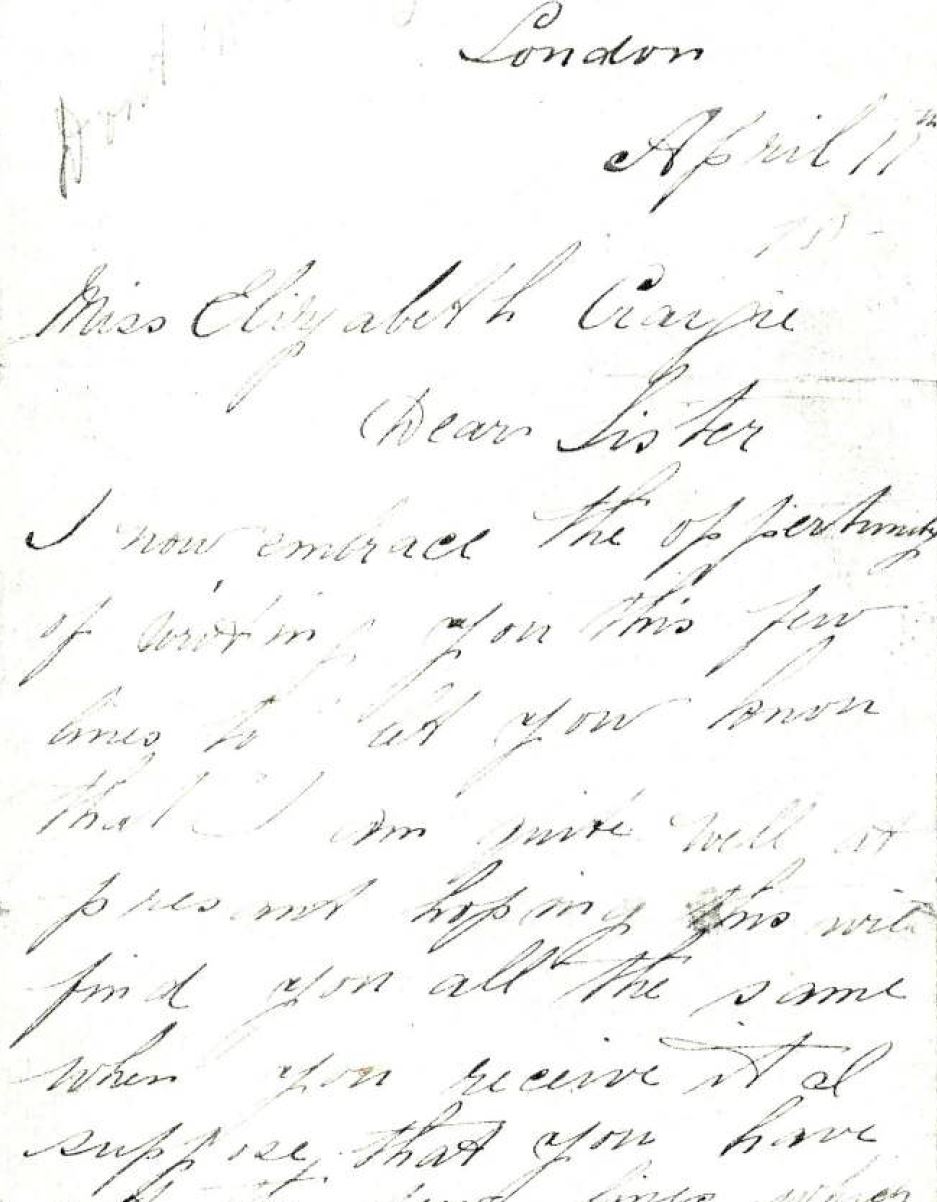 London
April 17th
Miss Elizabeth Craigie
Dear Sister
I now embrace the oppertunity
of writing you this few
lines to let you know
that I am quite well at
present hoping this will
find you all the same
when you receive it I
suppose that you have
lines when